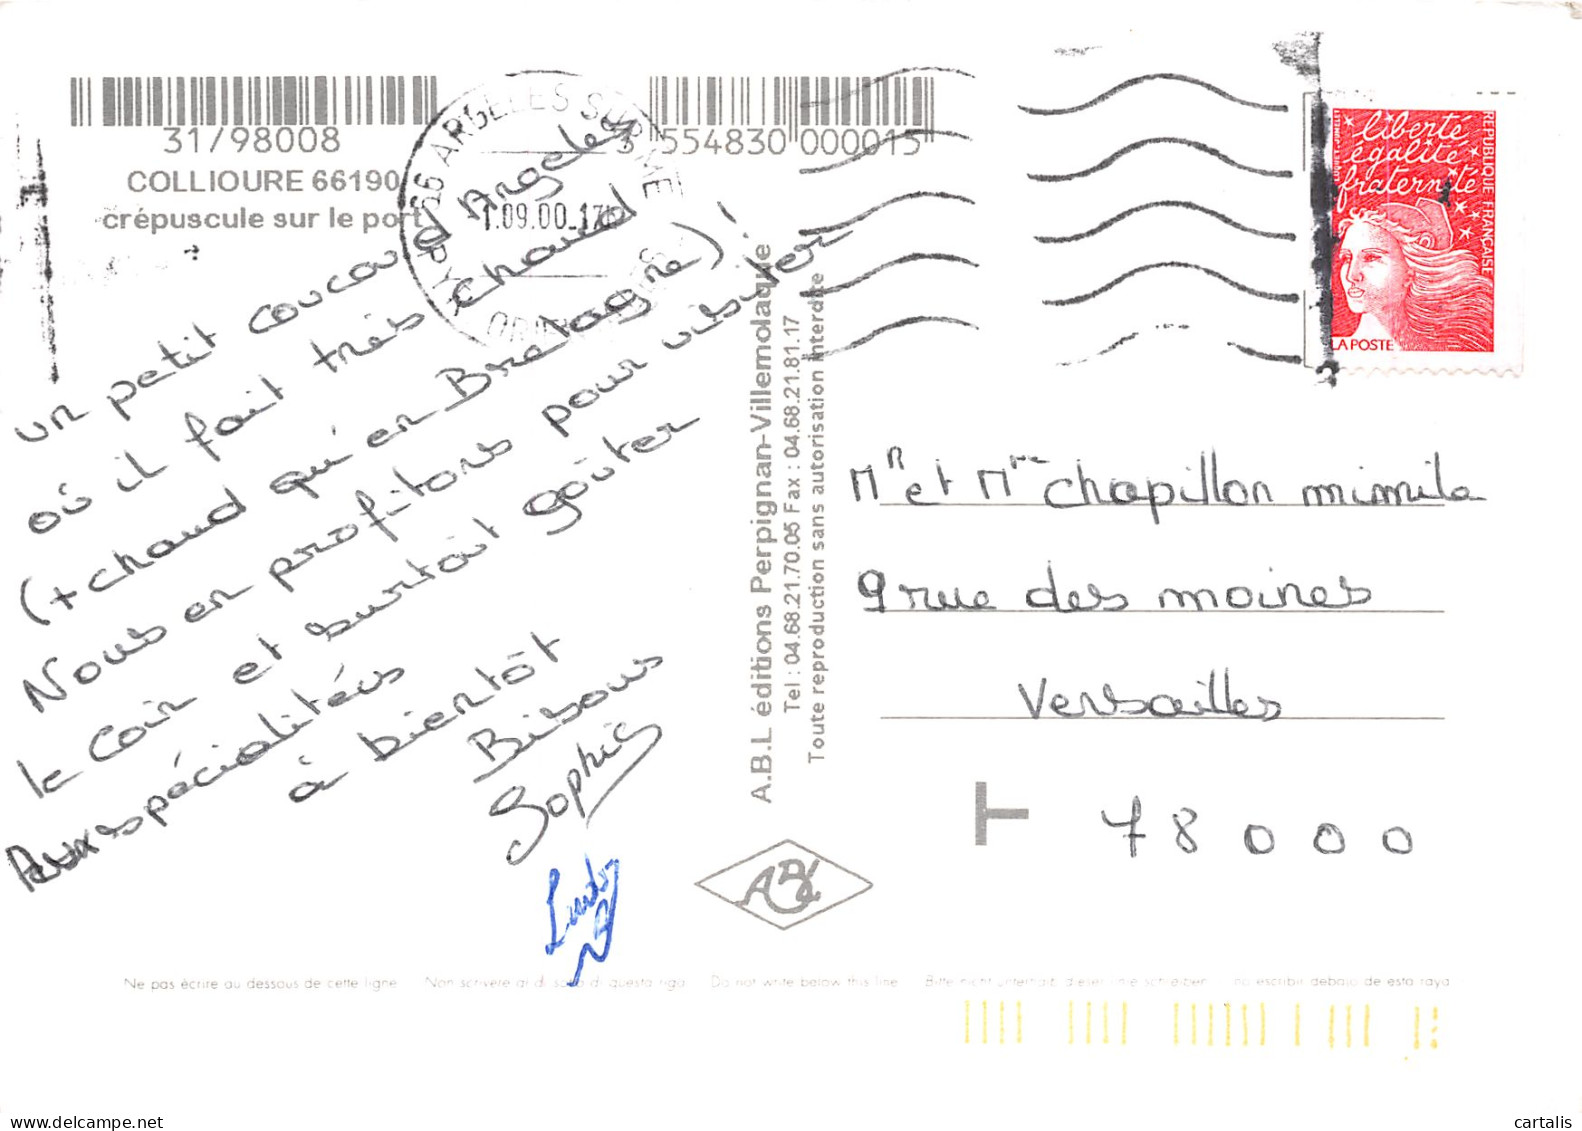 31/98008
3 554830 000015
COLLIOURE 66190
crépuscule sur le port
66 ARGELES SUR MER
1.09.00-17H
un petit coucou d'Argeles
où il fait très chaud
(+ chaud qu'en Bretagne)!
Nous en profitons pour visiter
le coin et surtout goûter
aux spécialités
à bientôt
Bisous
Sophie
A.B.L éditions Perpignan-Villemolaque
Tel : 04.68.21.70.05 Fax : 04.68.21.81.17
Toute reproduction sans autorisation interdite
ABL
liberté
égalité
fraternité
RÉPUBLIQUE FRANÇAISE
LA POSTE
Mr et Mme Chapillon mimila
9 rue des moines
Versailles
T
78000
Ne pas écrire au dessous de cette ligne Non scrivere al di sotto di questa riga Do not write below this line Bitte nicht unterhalb dieser linie schreiben no escribir debajo de esta raya
delcampe.net
cartalis